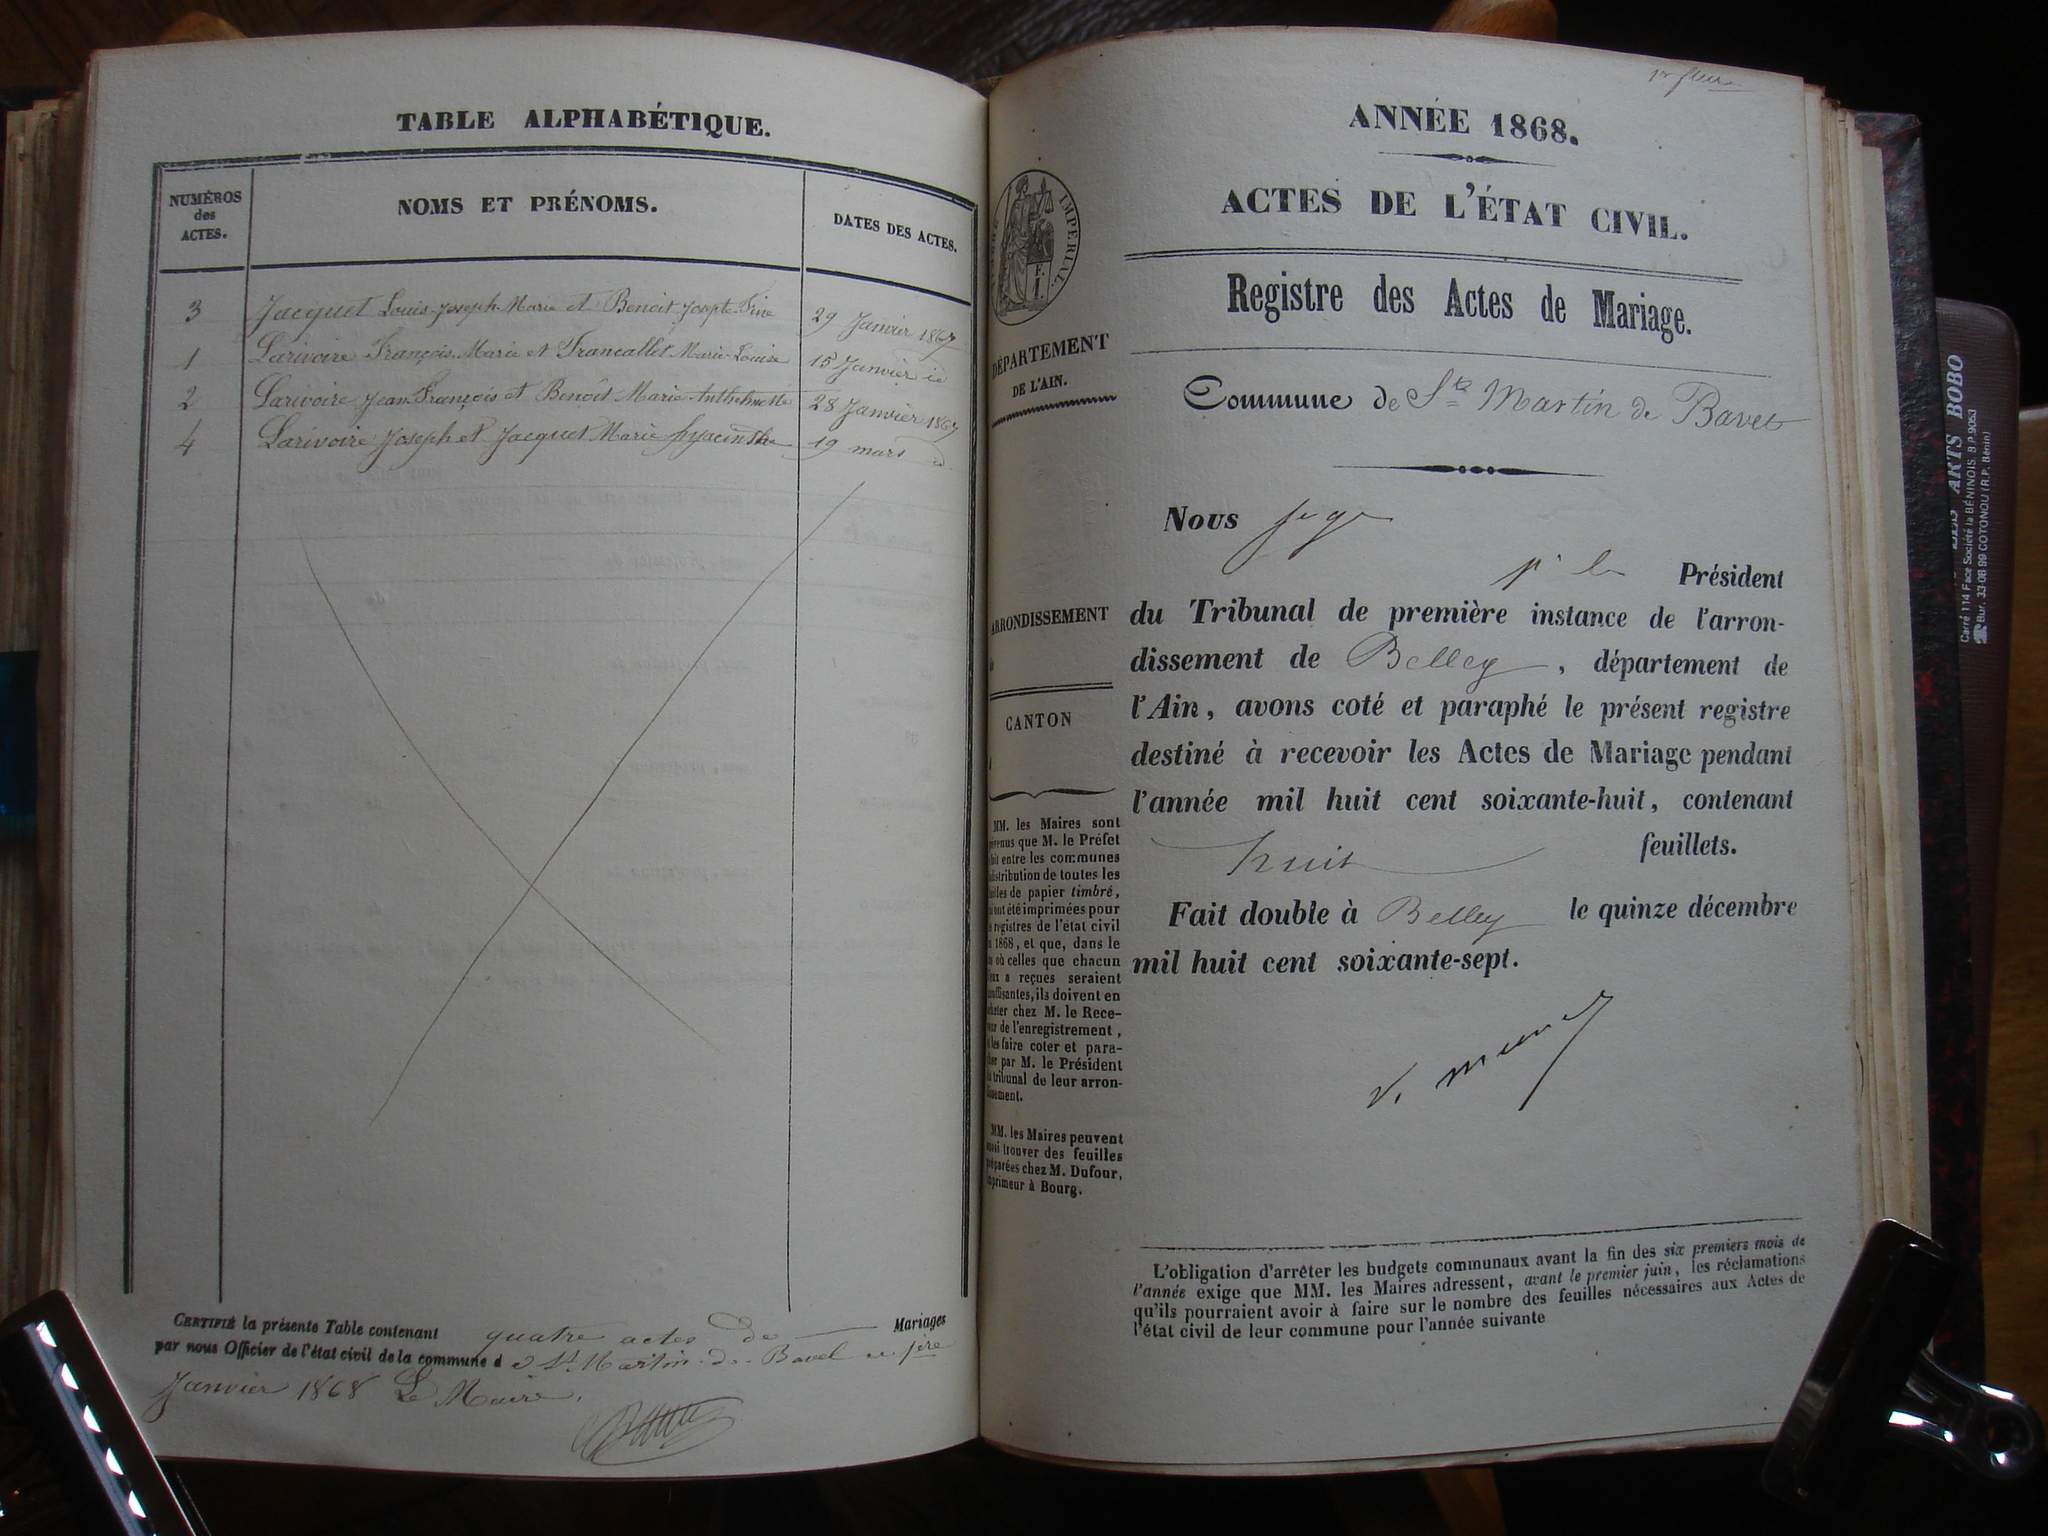 TABLE ALPHABÉTIQUE.
NUMÉROS
des
ACTES.
NOMS ET PRÉNOMS.
DATES DES ACTES.
3 Jacquet Louis Joseph Marie et Benoit Josepte Fine 29 Janvier 1867
1 Larivoire François Marie et Francallet Marie Louise 15 Janvier id
2 Larivoire Jean François et Benoit Marie Anthelmette 28 Janvier 1867
4 Larivoire Joseph et Jacquet Marie hyacinthe 19 mars id
CERTIFIÉ la présente Table contenant quatre actes de Mariages
par nous Officier de l'état civil de la commune d e St Martin de Bavel ce 1er
Janvier 1868 Le Maire,
ANNÉE 1868.
ACTES DE L'ÉTAT CIVIL.
Registre des Actes de Mariage.
IMPÉRIAL.
F.
I.
DÉPARTEMENT
DE L'AIN.
Commune de St Martin de Bavel
Nous juge
pr le Président
du Tribunal de première instance de l'arron-
dissement de Belley, département de
l'Ain, avons coté et paraphé le présent registre
destiné à recevoir les Actes de Mariage pendant
l'année mil huit cent soixante-huit, contenant
huit feuillets.
Fait double à Belley le quinze décembre
mil huit cent soixante-sept.
ARRONDISSEMENT
CANTON
MM. les Maires sont
que M. le Préfet
entre les communes
distribution de toutes les
de papier timbré,
ont été imprimées pour
registres de l'état civil
1868, et que, dans le
où celles que chacun
a reçues seraient
ils doivent en
chez M. le Rece-
de l'enregistrement,
les faire coter et para-
par M. le Président
tribunal de leur arron-
MM. les Maires peuvent
trouver des feuilles
chez M. Dufour,
à Bourg.
L'obligation d'arrêter les budgets communaux avant la fin des six premiers mois de
l'année exige que MM. les Maires adressent, avant le premier juin, les réclamations
qu'ils pourraient avoir à faire sur le nombre des feuilles nécessaires aux Actes de
l'état civil de leur commune pour l'année suivante
LES ARTS BOBO
Carré 114 Face Société la BÉNINOIS. B.P. 9063
Bur. 33 08 99 COTONOU (R.P. Bénin)